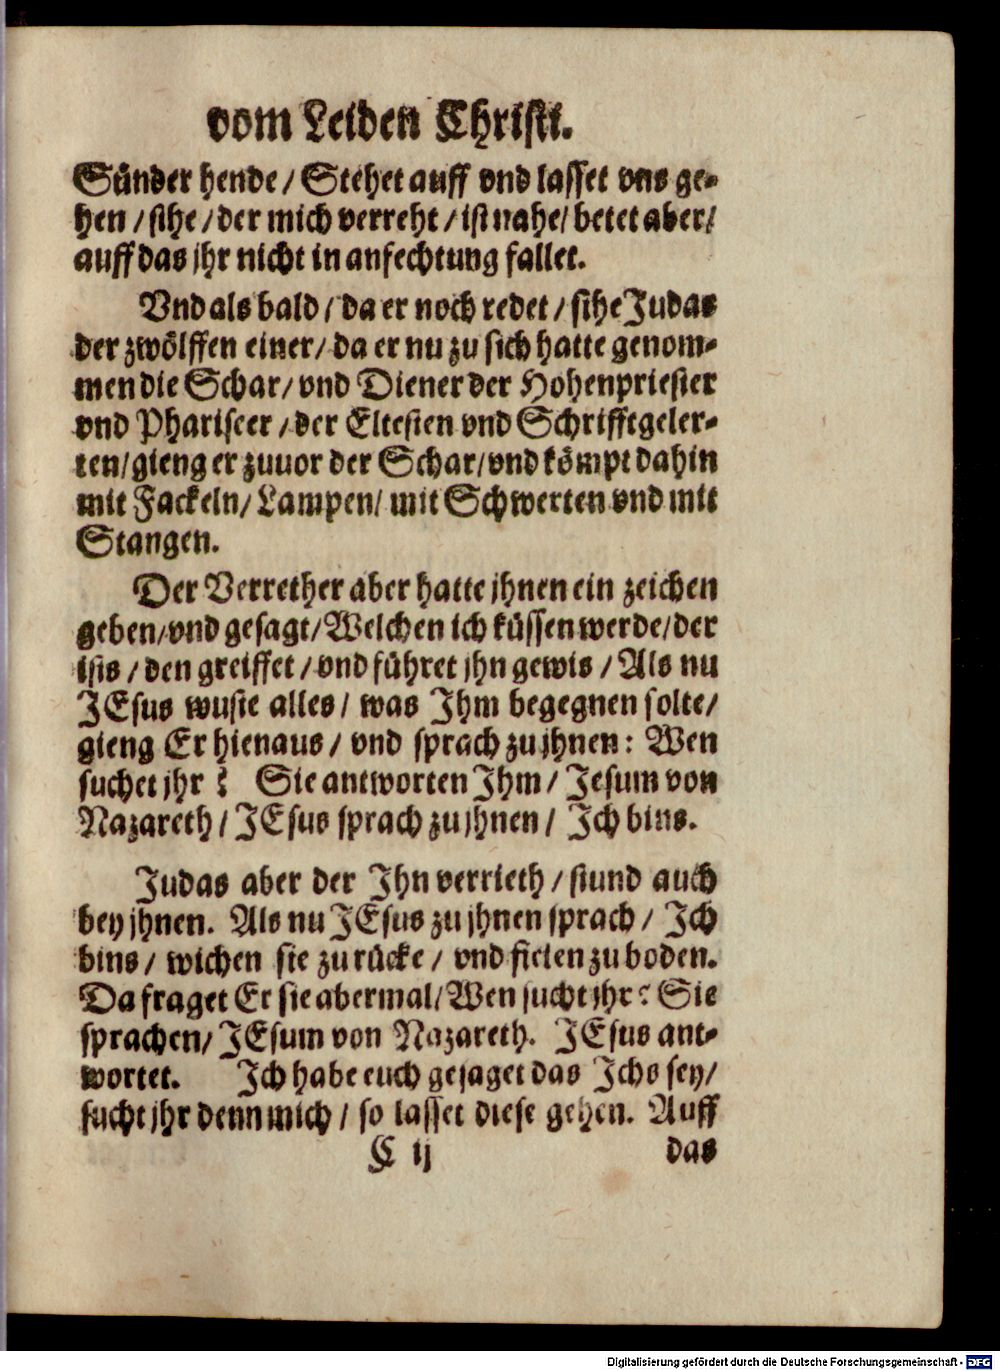 vom Leiden Christi.
Sünder hende / Stehet auff vnd lasset vns ge-
hen / sihe / der mich verreht / ist nahe / betet aber /
auff das jhr nicht in anfechtung fallet.
Vnd als bald / da er noch redet / sihe Judas
der zwölffen einer / da er nu zu sich hatte genom-
men die Schar / vnd Diener der Hohenpriester
vnd Phariseer / der Eltesten vnd Schrifftgeler-
ten / gieng er zuuor der Schar / vnd kömpt dahin
mit Fackeln / Lampen / mit Schwerten vnd mit
Stangen.
Der Verrether aber hatte jhnen ein zeichen
geben / vnd gesagt / Welchen ich küssen werde / der
ists / den greiffet / vnd führet jhn gewis / Als nu
JEsus wuste alles / was Ihm begegnen solte /
gieng Er hienaus / vnd sprach zu jhnen: Wen
suchet jhr? Sie antworten Ihm / Jesum von
Nazareth / JEsus sprach zu jhnen / Ich bins.
Judas aber der Ihn verrieth / stund auch
bey jhnen. Als nu JEsus zu jhnen sprach / Ich
bins / wichen sie zu rücke / vnd fielen zu boden.
Da fraget Er sie abermal / Wen sucht jhr? Sie
sprachen / JEsum von Nazareth. JEsus ant-
wortet. Ich habe euch gesaget das Ichs sey /
sucht jhr denn mich / so lasset diese gehen. Auff
C ij das
Digitalisierung gefördert durch die Deutsche Forschungsgemeinschaft - DFG